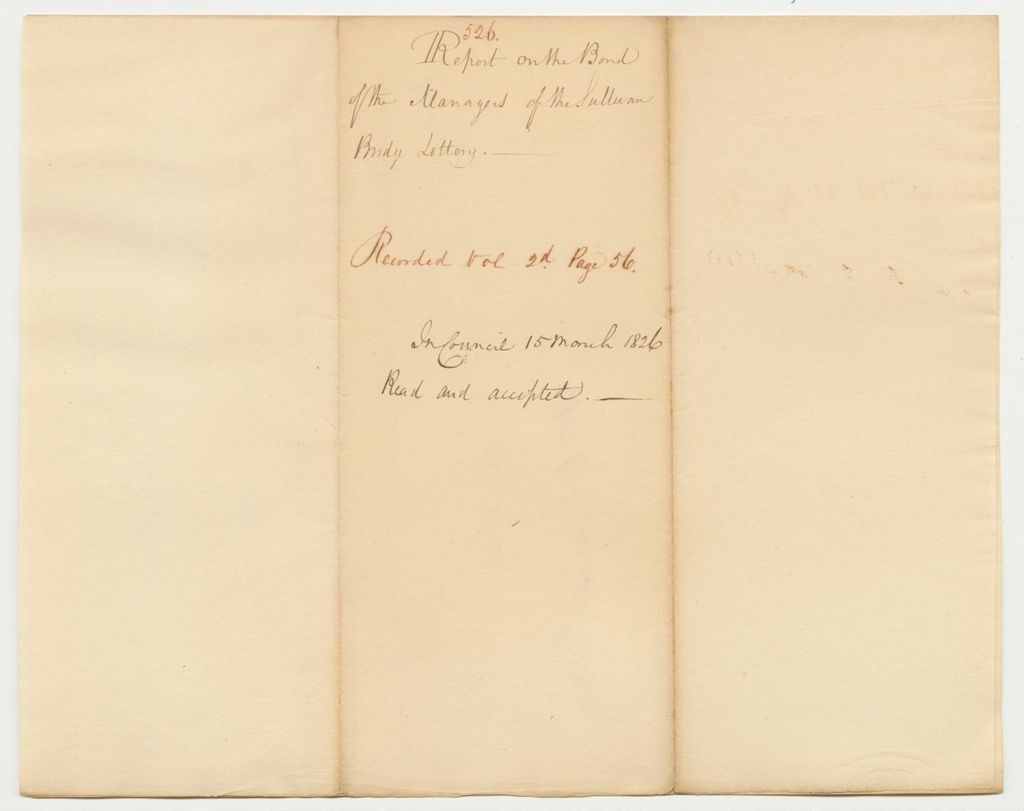 526.
Report on the Bond
of the Managers of the Sullivan
Bridge Lottery.
Recorded Vol 2d Page 56.
In Council 15 March 1826
Read and accepted.